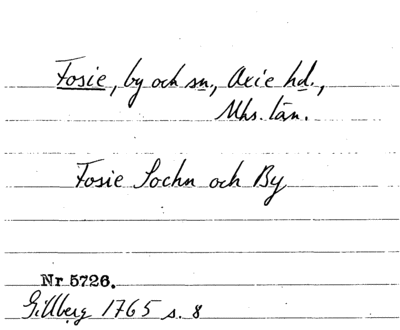 Fosie, by och sn., Oxie hd.,
Mhs. län.
Fosie Sochn och By
Nr 5726.
Gillberg 1765 s. 8